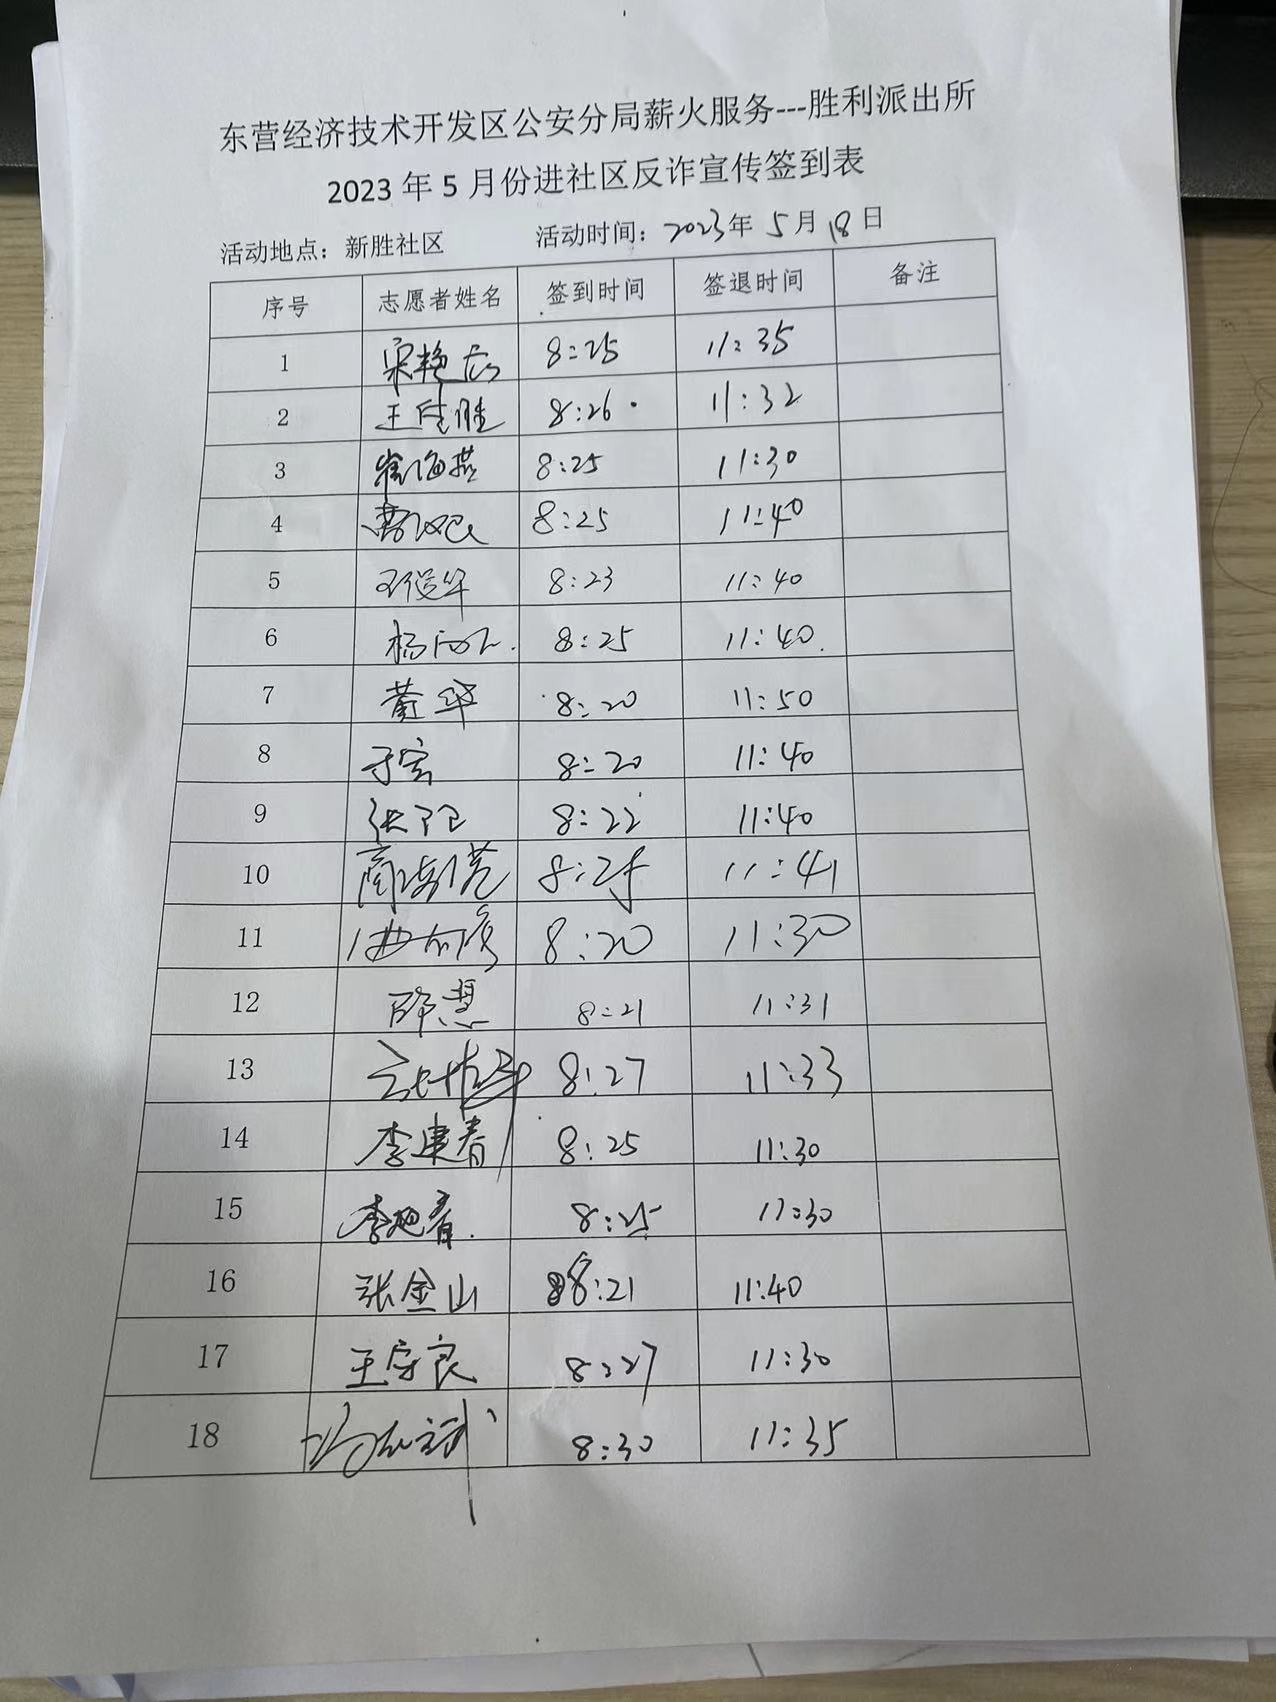 东营经济技术开发区公安分局薪火服务---胜利派出所
2023 年 5 月份进社区反诈宣传签到表
活动地点：新胜社区 活动时间：2023年 5 月 18 日
序号 志愿者姓名 签到时间 签退时间 备注
1 宋艳 8:25 11:35
2 王佳胜 8:26 11:32
3 徐海燕 8:25 11:30
4 8:25 11:40
5 8:23 11:40
6 杨 8:25 11:40
7 黄华 8:20 11:50
8 于宏 8:20 11:40
9 张 8:22 11:40
10 商 8:25 11:41
11 8:20 11:30
12 邵慧 8:21 11:31
13 8:27 11:33
14 李建春 8:25 11:30
15 李旭春 8:25 11:30
16 张金山 8:21 11:40
17 王守良 8:27 11:30
18 8:30 11:35